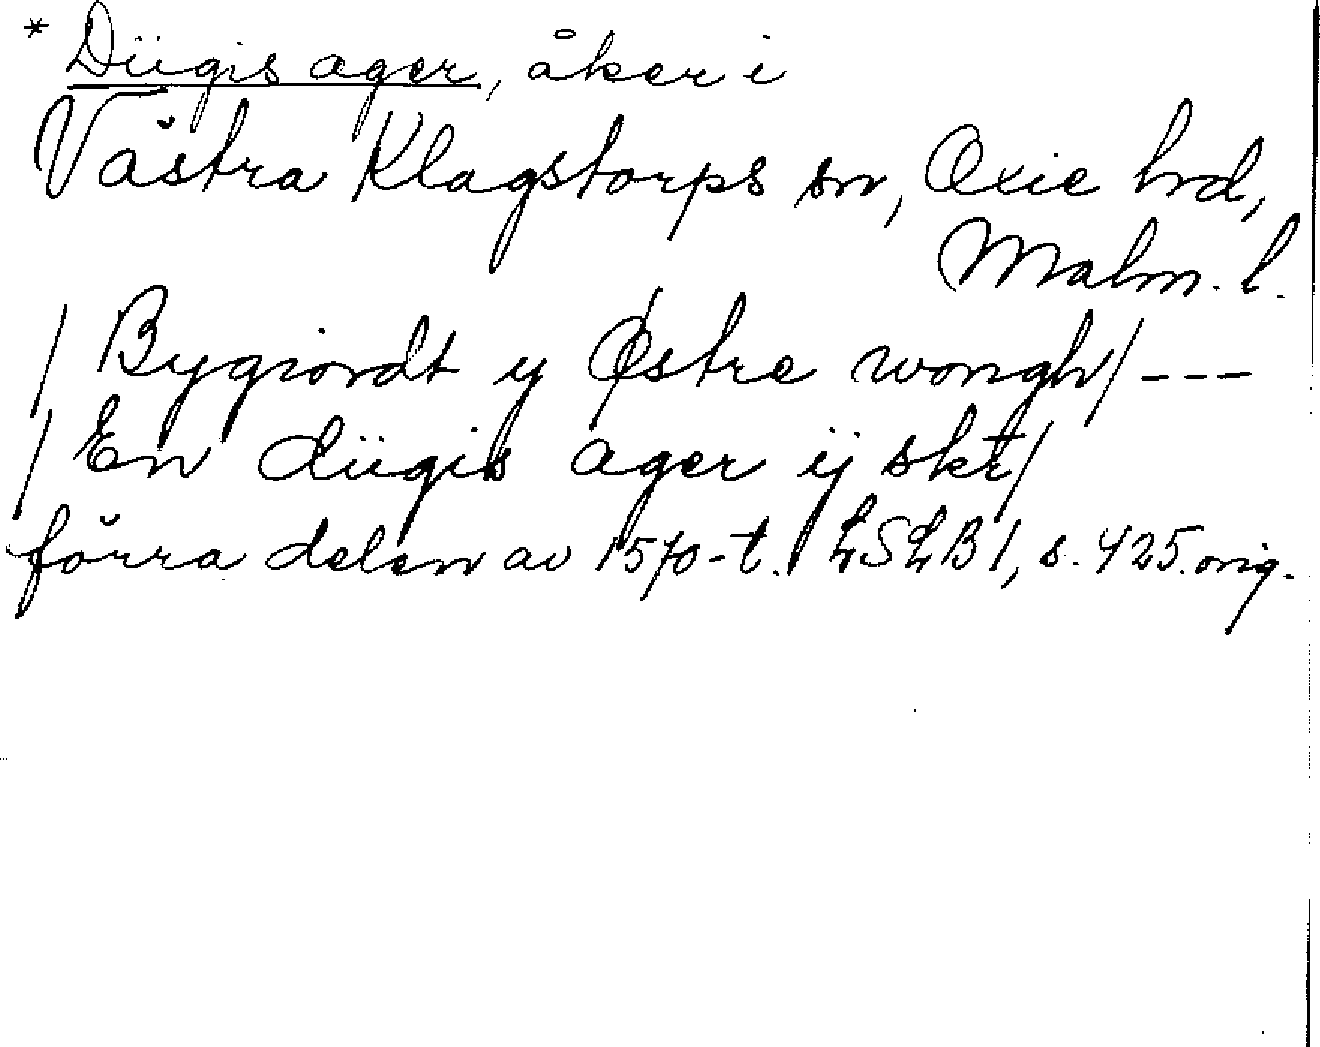 * Dügis ager, åker i
Västra Klagstorps sn, Oxie hrd,
Malm. l.
/ Bygiordt y Østre wongh / ---
/ En dügis ager ÿ skt /
förra delen av 1570-t. LSLB 1, s. 425. orig.